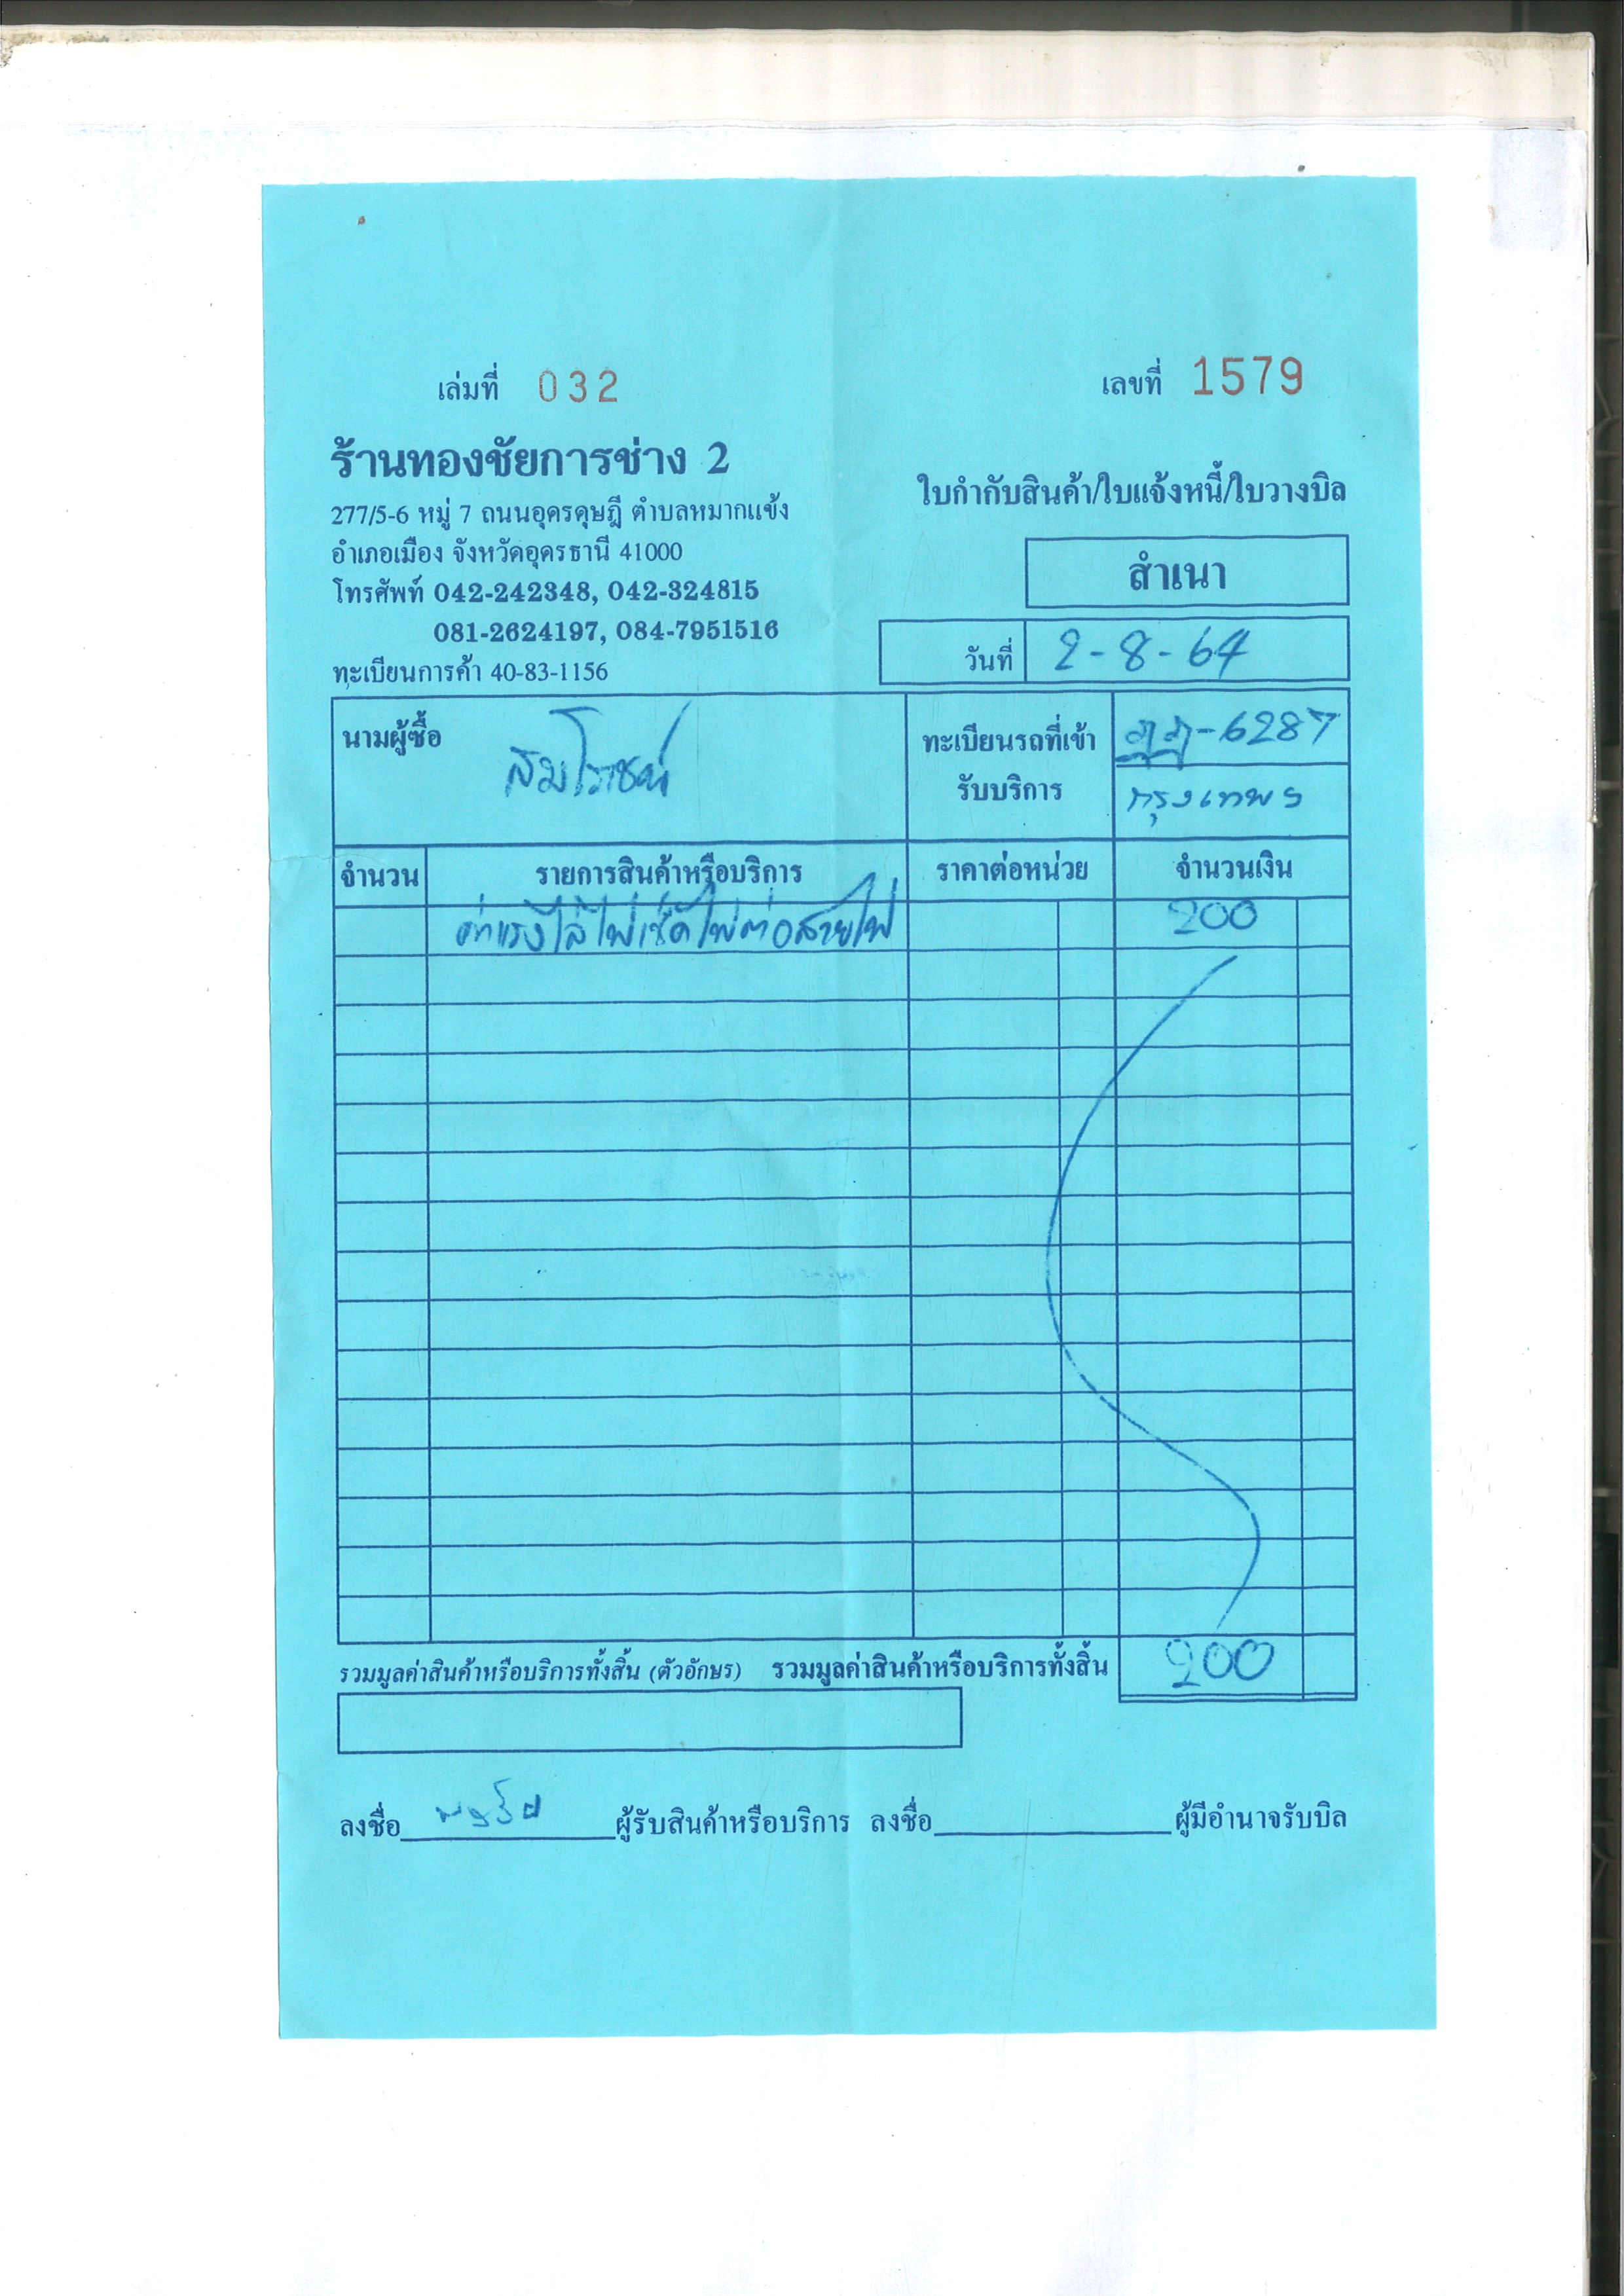 เล่มที่ 032
เลขที่ 1579
ร้านทองชัยการช่าง 2
277/5-6 หมู่ 7 ถนนอุดรดุษฎี ตำบลหมากแข้ง
อำเภอเมือง จังหวัดอุดรธานี 41000
โทรศัพท์ 042-242348, 042-324815
081-2624197, 084-7951516
ทะเบียนการค้า 40-83-1156
ใบกำกับสินค้า/ใบแจ้งหนี้/ใบวางบิล
สำเนา
วันที่ 2-8-64
นามผู้ซื้อ สมโรชน์
ทะเบียนรถที่เข้า
รับบริการ
-6287
กรุงเทพฯ
จำนวน รายการสินค้าหรือบริการ ราคาต่อหน่วย จำนวนเงิน
ค่าแรงไล่ไฟเช็คไฟต่อสายไฟ 200
รวมมูลค่าสินค้าหรือบริการทั้งสิ้น (ตัวอักษร) รวมมูลค่าสินค้าหรือบริการทั้งสิ้น 200
ลงชื่อ ผู้รับสินค้าหรือบริการ ลงชื่อ ผู้มีอำนาจรับบิล